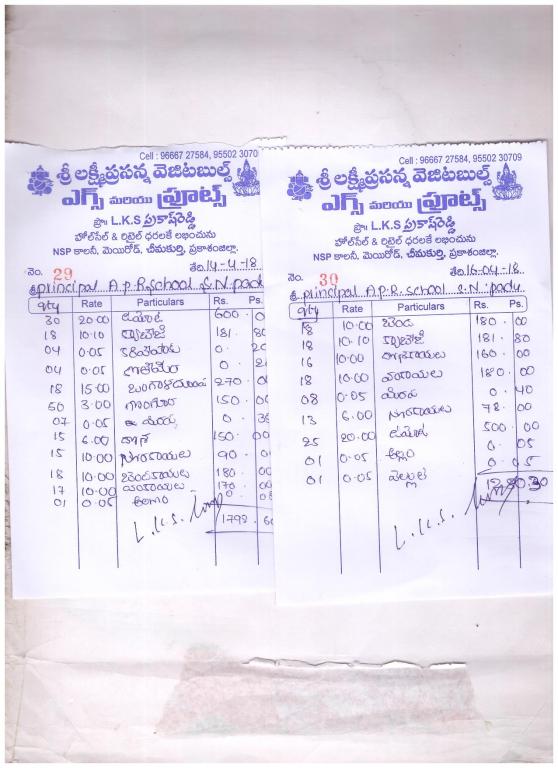 Cell : 96667 27584, 95502 30709
శ్రీ లక్ష్మీప్రసన్న వెజిటబుల్స్
ఎగ్స్ మరియు ఫ్రూట్స్
ప్రొ॥ L.K.S ప్రకాష్‌రెడ్డి
హోల్‌సేల్ & రిటైల్ ధరలకే లభించును
NSP కాలనీ, మెయిన్‌రోడ్, చీమకుర్తి, ప్రకాశంజిల్లా.
నెం. 29 తేది. 14-4-18
శ్రీ principal A.P.R. school S.N. padu
Qty Rate Particulars Rs. Ps.
30 20.00 టమోట 600.
18 10.10 క్యాబేజి 181. 80
04 0.05 కరివేపాకు 0. 20
04 0.05 కొతిమీర 0.
18 15.00 270.
50 3.00 గోంగూర 150.
07 0.05 0. 35
15 6.00 150.
15 10.00 సొరకాయలు 90.
18 10.00 బెండకాయలు 180.
17 10.00 170.
01 0.05 అల్లం 0.
L.K.S. 1792.
Cell : 96667 27584, 95502 30709
శ్రీ లక్ష్మీప్రసన్న వెజిటబుల్స్
ఎగ్స్ మరియు ఫ్రూట్స్
ప్రొ॥ L.K.S ప్రకాష్‌రెడ్డి
హోల్‌సేల్ & రిటైల్ ధరలకే లభించును
NSP కాలనీ, మెయిన్‌రోడ్, చీమకుర్తి, ప్రకాశంజిల్లా.
నెం. 30 తేది. 16-04-18
శ్రీ principal A.P.R. school S.N. padu
Qty Rate Particulars Rs. Ps.
18 10.00 బెండ 180. 00
18 10.10 క్యాబేజి 181. 80
16 10.00 160. 00
18 10.00 180. 00
08 0.05 0. 40
13 6.00 సొరకాయలు 78. 00
25 20.00 టమోట 500. 00
01 0.05 అల్లం 0. 05
01 0.05 0. 05
L.K.S. 1280.30